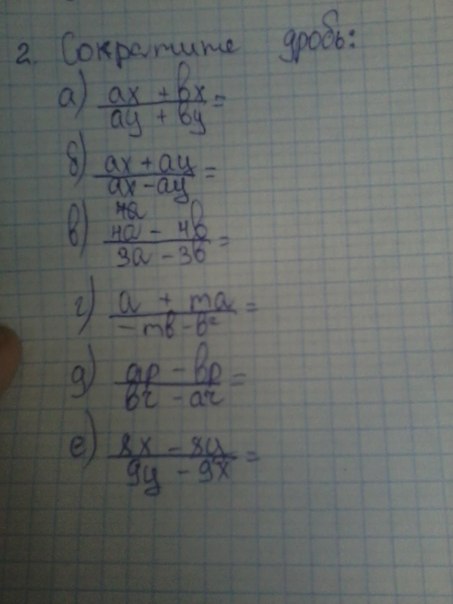 2. Сократите дробь:
а) ax + bx / ay + by =
б) ax + ay / ax - ay =
4a
в) 4a - 4b / 3a - 3b =
г) a + ma / - mb - b² =
д) ap - bp / br - ar =
е) 8x - 8y / 9y - 9x =